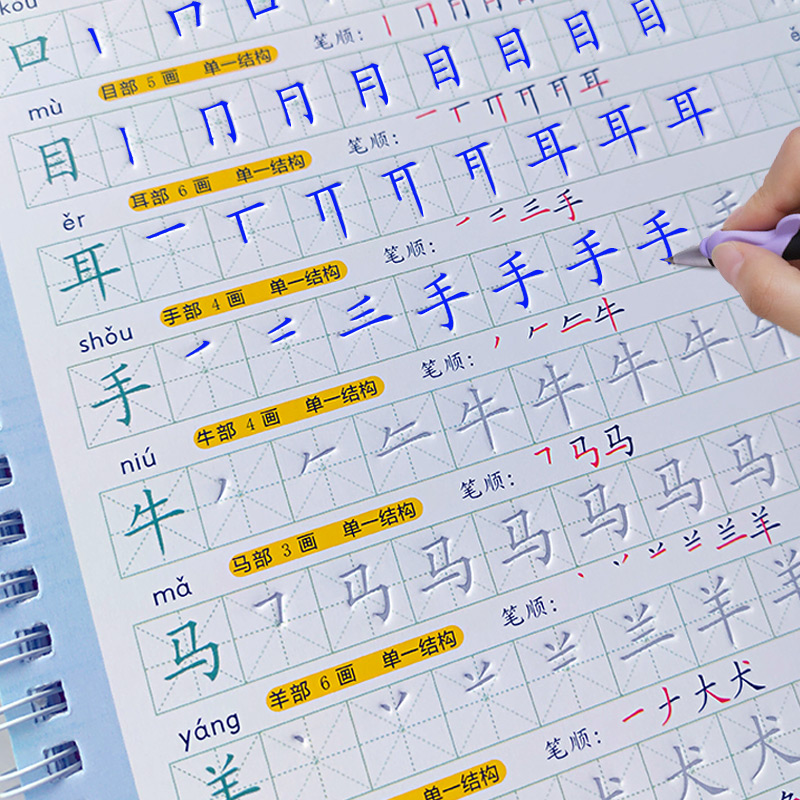 kǒu
口 丨 冂 口
目部 5 画 单一结构 笔顺: 丨 冂 月 月 目
mù
目 丨 冂 月 月 目 目 目 目
耳部 6 画 单一结构 笔顺: 一 丅 丌 耳 耳 耳
ěr
耳 一 丅 丌 耳 耳 耳 耳 耳
手部 4 画 单一结构 笔顺: 一 二 三 手
shǒu
手 一 二 三 手 手 手 手 手
牛部 4 画 单一结构 笔顺: 丿 𠂉 牛
niú
牛 丿 𠂉 牛 牛 牛 牛 牛
马部 3 画 单一结构 笔顺: 马 马
mǎ
马 马 马 马 马 马 马
羊部 6 画 单一结构 笔顺: 丶 丷 兰 羊
yáng
羊 丶 丷 兰 羊 羊
单一结构 笔顺: 一 ナ 大 犬
犬 犬 犬